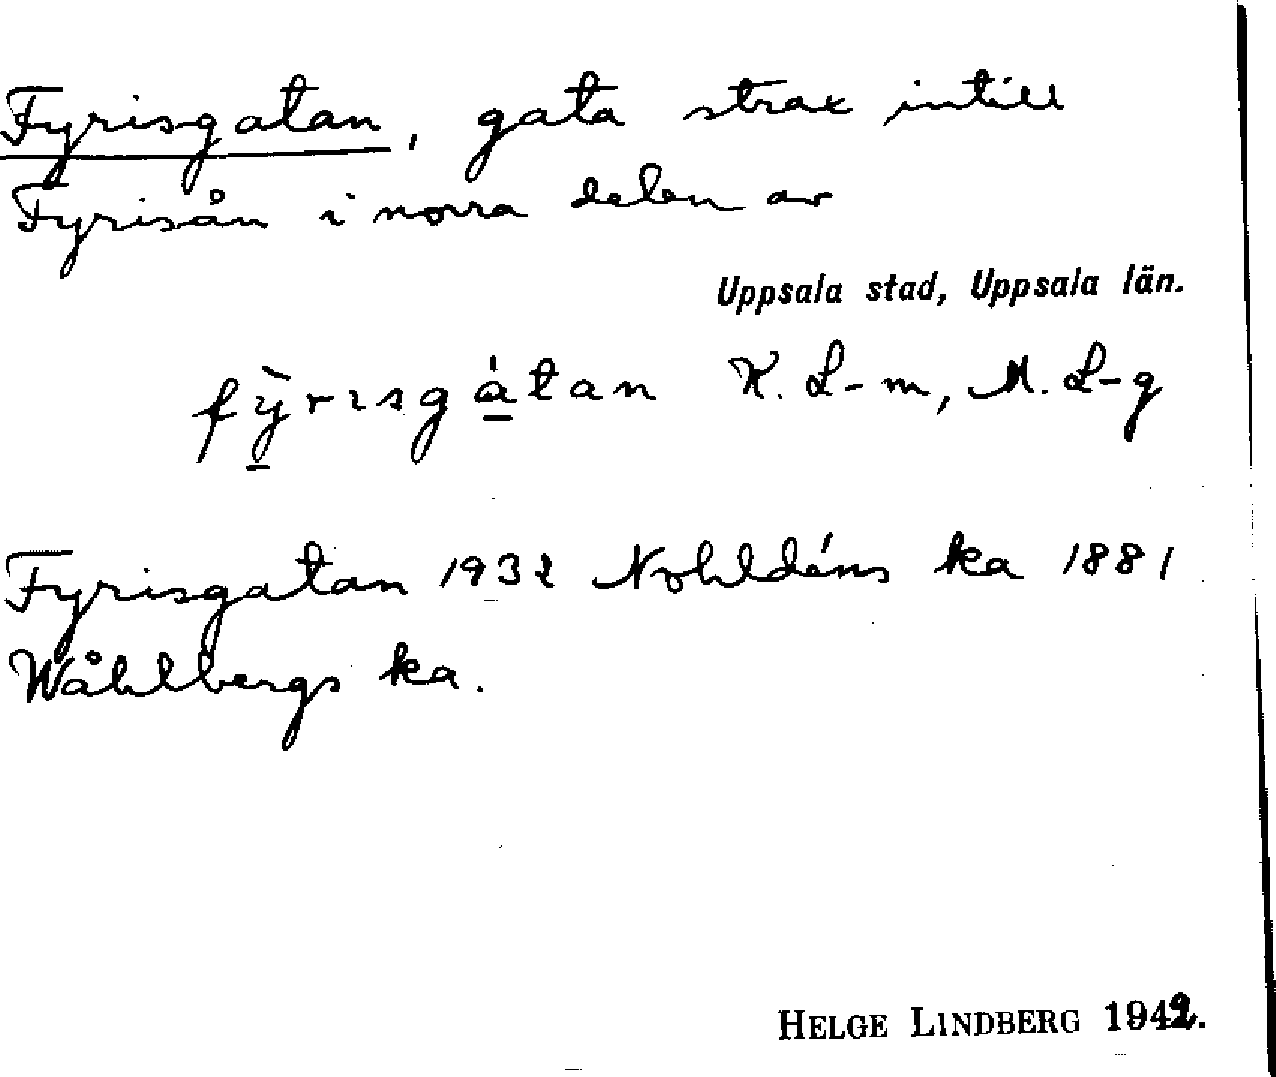 Fyrisgatan, gata strax intill
Fyrisån i norra delen av
Uppsala stad, Uppsala län.
fỳ̠rısgá̠tan K. L-m, M. L-g
Fyrisgatan 1932 Nohldéns ka 1881
Wåhlbergs ka.
HELGE LINDBERG 1942.